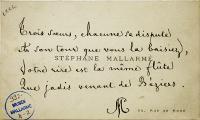 Trois sœurs, chacune se dispute
À son tour que vous la baisiez,
STÉPHANE MALLARMÉ
Votre rire est la même flûte
Que jadis venant de Béziers.
M
89, RUE DE ROME
MUSÉE
MALLARMÉ